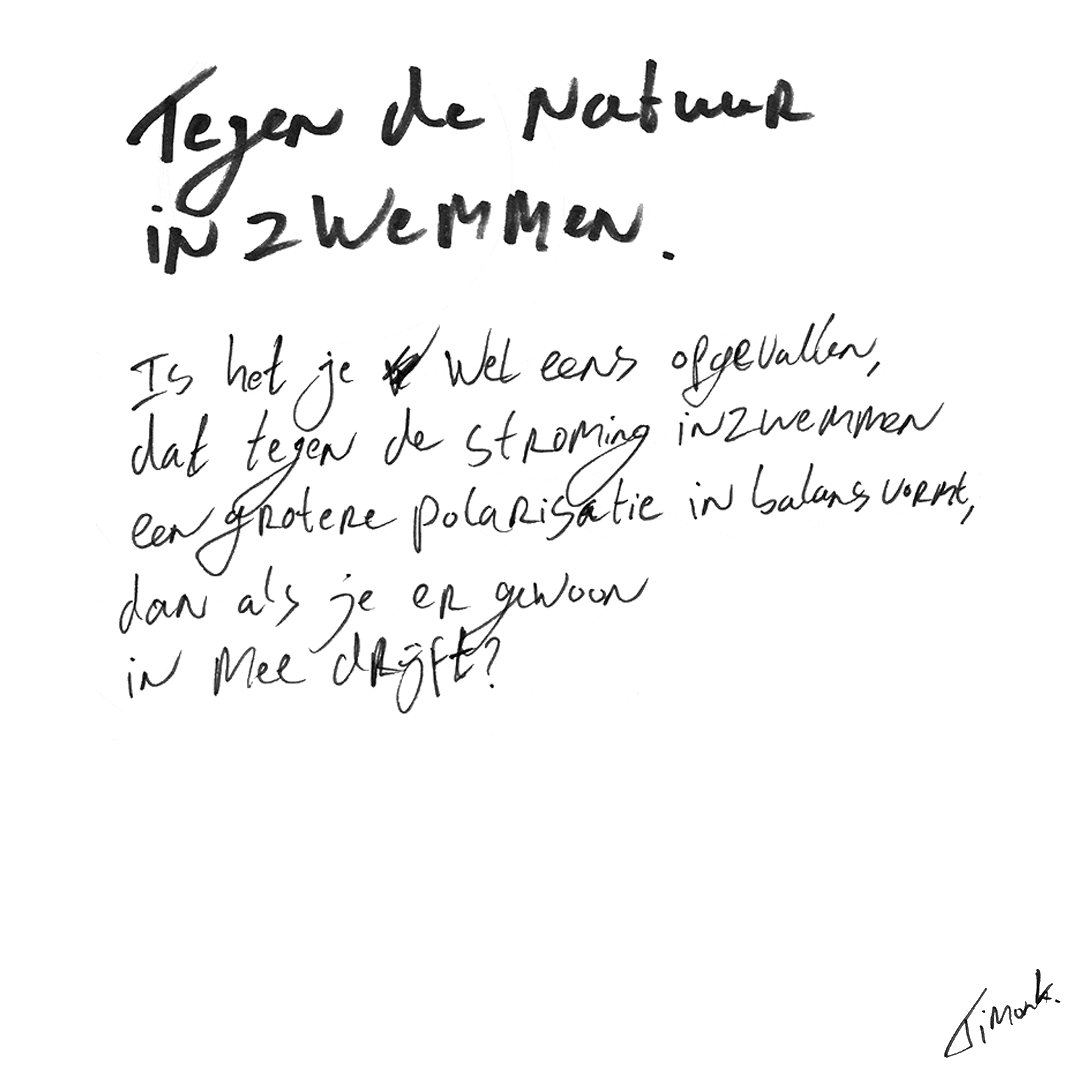 Tegen de Natuur
in zwemmen.
Is het je wel eens opgevallen,
dat tegen de stroming inzwemmen
een grotere polarisatie in balans vormt,
dan als je er gewoon
in mee drijft?
TiMonk.